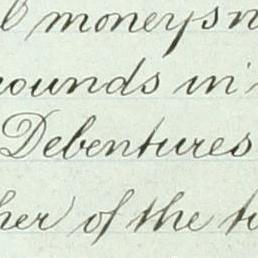 moneys
pounds in
Debentures
her of the